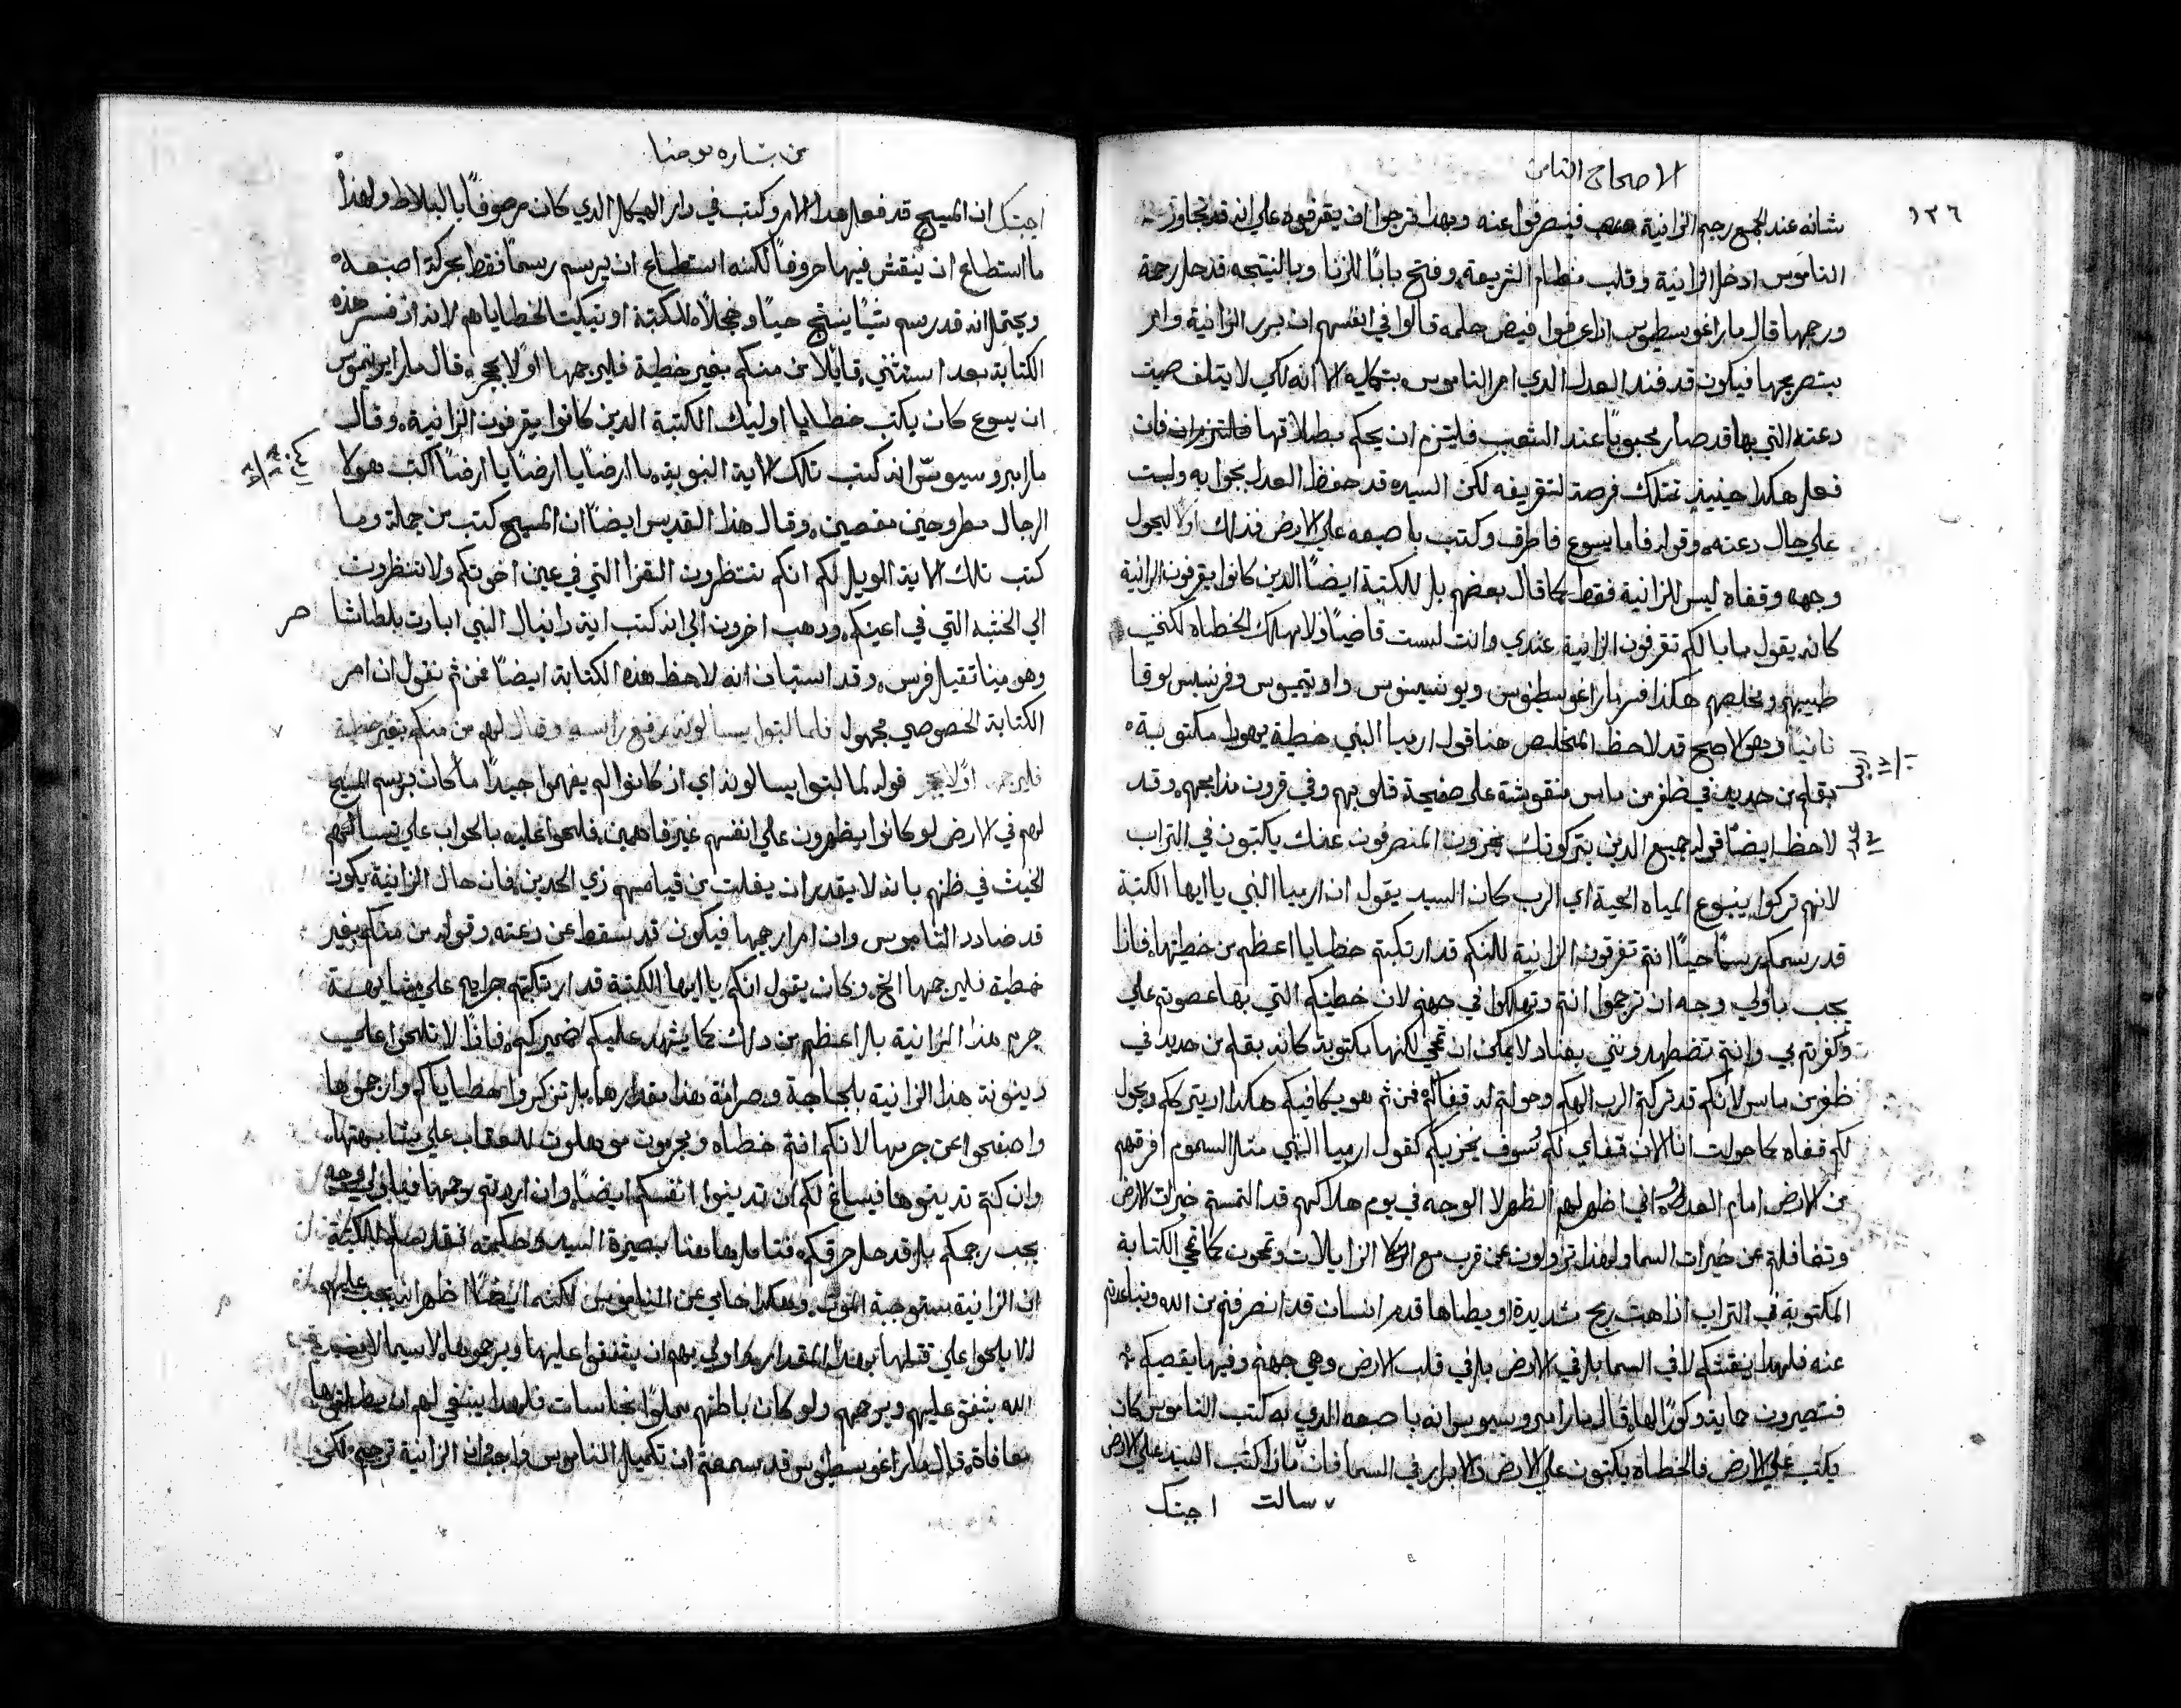 الاصحاح الثامن
١٣٦
شانه عند الجمع رجم الزانية فينصرفوا عنه وبهدا ترجوا ان يقرفوه علي انه قد تجاوز
الناموس ادخل الزانية وقلب نظام الشريعة وفتح بابًا للزنا وبالنتيجه قد حل رحمة
ورجمها قال ماراغوسطينوس اذا عرفوا فيض حلمه قالوا في انفسهم ان يبرر الزانية وامر
بتصريحها فيكون قد فند العدل الدي امر الناموس بتكميله الا انه لكي لا يتلف صيت
دعته التي بها قد صار محبوبًا عند الشعب فليتزم ان يحكم بطلاقها فان
فعل هكدا حينيذ نمتلك فرصة لتقريفه لكن السيد قد حفظ العدل بجوابه ولبت
علي حال دعته وقوله فاما يسوع فاطرق وكتب باصبعه علي الارض فذلك اولًا ليحول
وجهه وقفاه ليس للزانية فقط كما قال بعضهم بل للكتبة ايضًا الدين كانوا يقرفون الزانية
كانه يقول ما بالكم تقرفون الزانية عندي وانا لست قاضيًا ولا مهلك الخطاه لكنني
طبيبهم ومخلصهم هكذا فسر ماراغوسطينوس ويونسينوس واوتيميوس وفرنسيس لوقا
ثانيًا وهو الاصح قد لاحظ المخلص هنا قول ارميا النبي خطية يهودا مكتوبة
بقلم من حديد في ظفر من ماس منقوشة علي صفيحة قلوبهم وفي قرون مذابحهم وقد
ارميا ١٧ / ١
لاحظ ايضًا قوله جميع الدين يتركونك يخزون المنصرفون عنك يكتبون في التراب
عدد ١٣
لانهم تركوا ينبوع المياه الحية اي الرب كان السيد يقول ان ارميا النبي يا ايها الكتبة
قد رسمكم رسمًا حيًا انتم تقرفون الزانية لكنكم قد ارتكبتم خطايا اعظم من خطيتها فاذًا
يجب باولي وجه ان ترجموا انتم وتهلكوا في جهنم لان خطيتكم التي بها عصوتم علي
وكفرتم بي وانتم تضطهدونني بعناد لا يمكن ان تمحي لكنها مكتوبة كانه بقلم من حديد في
ظفر من ماس لانكم قد تركتم الرب الهكم وحولتم له قفاكم فمن ثم هو يكافيكم هكدا اد يترككم ويحول
لكم قفاه كما حولت انا الان قفاي لكم سوف يخزيكم كقول ارميا النبي مثل السموم افرقهم
من الارض امام العدو اني اظهر لهم الظهر لا الوجه في يوم هلاكهم قد التمستم خيرات الارض
وتغافلتم عن خيرات السما ولهدا تزولون عن قرب مع الزايلات وتمحون كما تمحي الكتابة
المكتوبة في التراب اذا هبت ريح شديدة او يطاها قدم انسان قد انصرفتم من الله وتباعدتم
عنه فلهدا ينقشكم لا في السما بل في الارض بل في قلب الارض وهي جهنم وفيها يقصيكم
فتصيرون حماية وكورًا لها قال مار امبروسيوس انه باصبعه الدي به كتب الناموس كان
يكتب علي الارض فالخطاة يكتبون علي الارض والابرار في السما فان ماذا كتب السيد علي الارض
سالت اجبتك
من بشاره يوحنا
اجبتك ان المسيح قد فعل هدا الامر وكتب في دار الهيكل الدي كان مرصوفًا بالبلاط ولهذا
ما استطاع ان ينقش فيها حروفًا لكنه استطاع ان يرسم رسمًا فقط بحركة اصبعه
ويحتمل انه قد رسم شيًا ينتج حيًا وخجلًا للكتبة او تبكيت لخطاياهم لانه اذ فسر هذه
الكتابة بعد استثني قايلًا من منكم بغير خطية فليرجمها اولًا بحجر قال مار ايرنيموس
ان يسوع كان يكتب خطايا اوليك الكتبة الدين كانوا يقرفون الزانية وقال
مار امبروسيوس انه كتب تلك الاية النبوية يا ارضًا يا ارضًا يا ارضًا اكتب هولا
الرجال مطروحين مقصين وقال هذا القديس ايضًا ان المسيح كتب من جملة وما
كتب تلك الاية الويل لكم انكم تنتظرون القذا التي في عين اخوتكم ولا تنظرون
الي الخشبه التي في اعينكم ودهب اخرون الي انه كتب اية دانيال النبي ابارت بلطاشا
وهو مينا تقيل فرس وقد استبان انه لاحظ هذه الكتابة ايضًا فمن ثم نقول ان امر
الكتابة الخصوصي مجهول فلما لبتوا يسالونه رفع راسه وقال لهم من منكم بغير خطية
فليرجمها اولًا بحجر قوله لما لبتوا يسالونه اي اذ كانوا لم يفهموا جيدًا ما كان يرسم المسيح
لهم في الارض او كانوا يظهرون علي انفسهم غير فاهمين فلحوا عليه بالجواب علي تسالهم
الخبث في ظنهم بانه لا يقدر ان يفلت من قياسهم ذي الحدين فان حل الزانية يكون
قد ضادد الناموس وان امر رجمها فيكون قد سقط عن دعته وقوله من منكم بغير
خطية فليرجمها الخ وكان يقول انكم يا ايها الكتبة قد ارتكبتم جرايم علي مشابهة
جرم هذا الزانية بل اعظم من دلك كما يشهد عليكم ضميركم فاذًا لا تلحوا علي
دينونة هذا الزانية بلجاجة وصرامة هذا مقدارها بل تذكروا خطاياكم وارحموها
واصفحوا عن جرمها لانكم انتم خطاه ومجرمون مستوهلون للعقاب علي مشابهتها
وان كنتم تدينوها فيساغ لكم ان تدينوا انفسكم ايضًا وان اردتم رجمها فباولي وجه
يجب رجمكم بل قد حل حرقكم فتامل هاهنا بصيرة السيد وحكمته فقد سلم للكتبة
ان الزانية مستوجبة الموت وهكدا حامي عن الناموس لكنه ايضًا اظهر انه يجب عليهم
الا يلحوا علي قتلها بهذا المقدار بل اولي بهم ان يشفقوا عليها ويرحموها لا سيما لان
الله يشفق عليهم ويرحمهم ولو كان باطنهم مملوًا نجاسات فلهدا ينبغي لهم ان يطلقوها
معافاة قال ماراغوسطينوس قد سمعتم ان تكميل الناموس واجب ان الزانية ترجم لكن